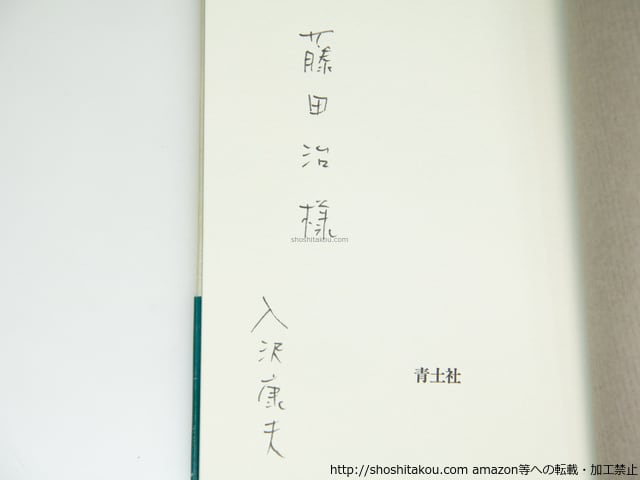 藤田治様
shoshitakou.com
入沢康夫
青土社
http://shoshitakou.com amazon等への転載・加工禁止